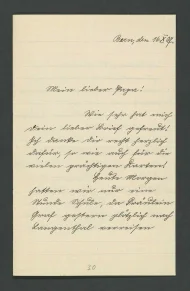 Bern, den 16. X. 07.
Mein lieber Papa!
Wie sehr hat mich
Dein lieber Brief gefreut!
Ich danke dir recht herzlich
dafür, so wie auch für die
vielen prächtigen Karten!
Heute Morgen
hatten wir nur eine
Stunde Schule, da Fräulein
Graf gestern plötzlich nach
Langenthal verreisen
20